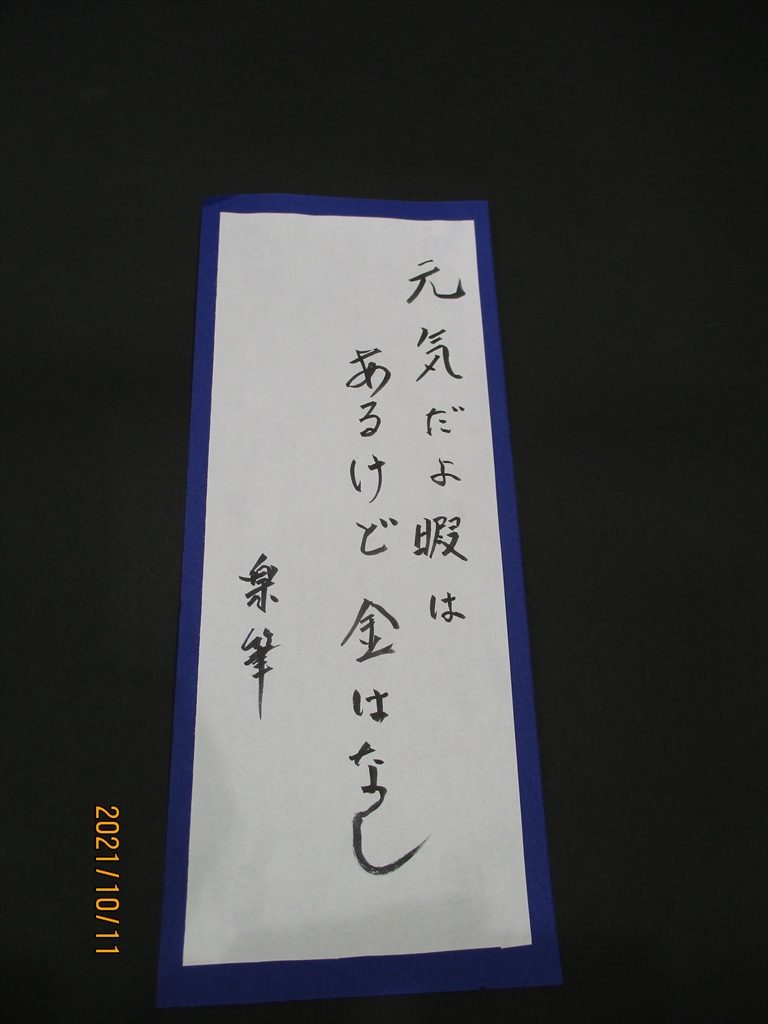 元気だよ暇は
あるけど金はなし
楽筆
2021/10/11